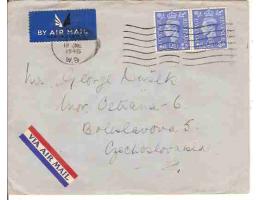 BY AIR MAIL
W.9
Mr. George Dušek
Mor. Ostrava-6
Boleslavova 5.
Czechoslovakia
VIA AIR MAIL